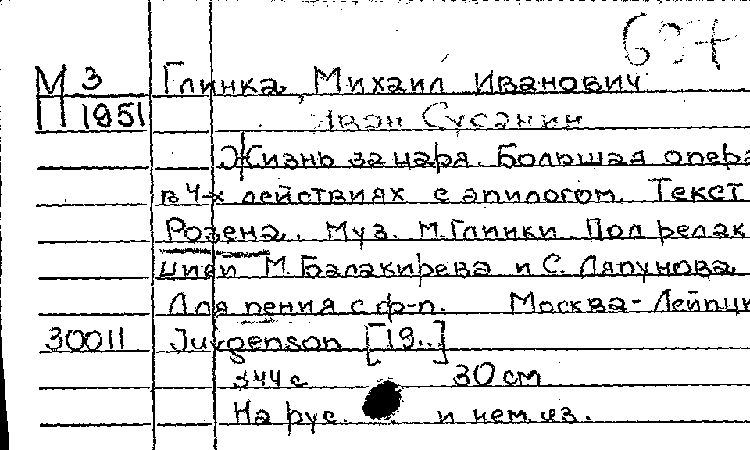 М 3 Глинка, Михаил Иванович
П 1951 Иван Сусанин
Жизнь за царя. Большая опера
в 4-х действиях с эпилогом. Текст
Розена. Муз. М. Глинки. Под редак
ции М. Балакирева и С. Ляпунова
Для пения с ф-п. Москва-Лейпци
30011 Jurgenson [19..]
344 с 30 см
На рус. и нем. из.